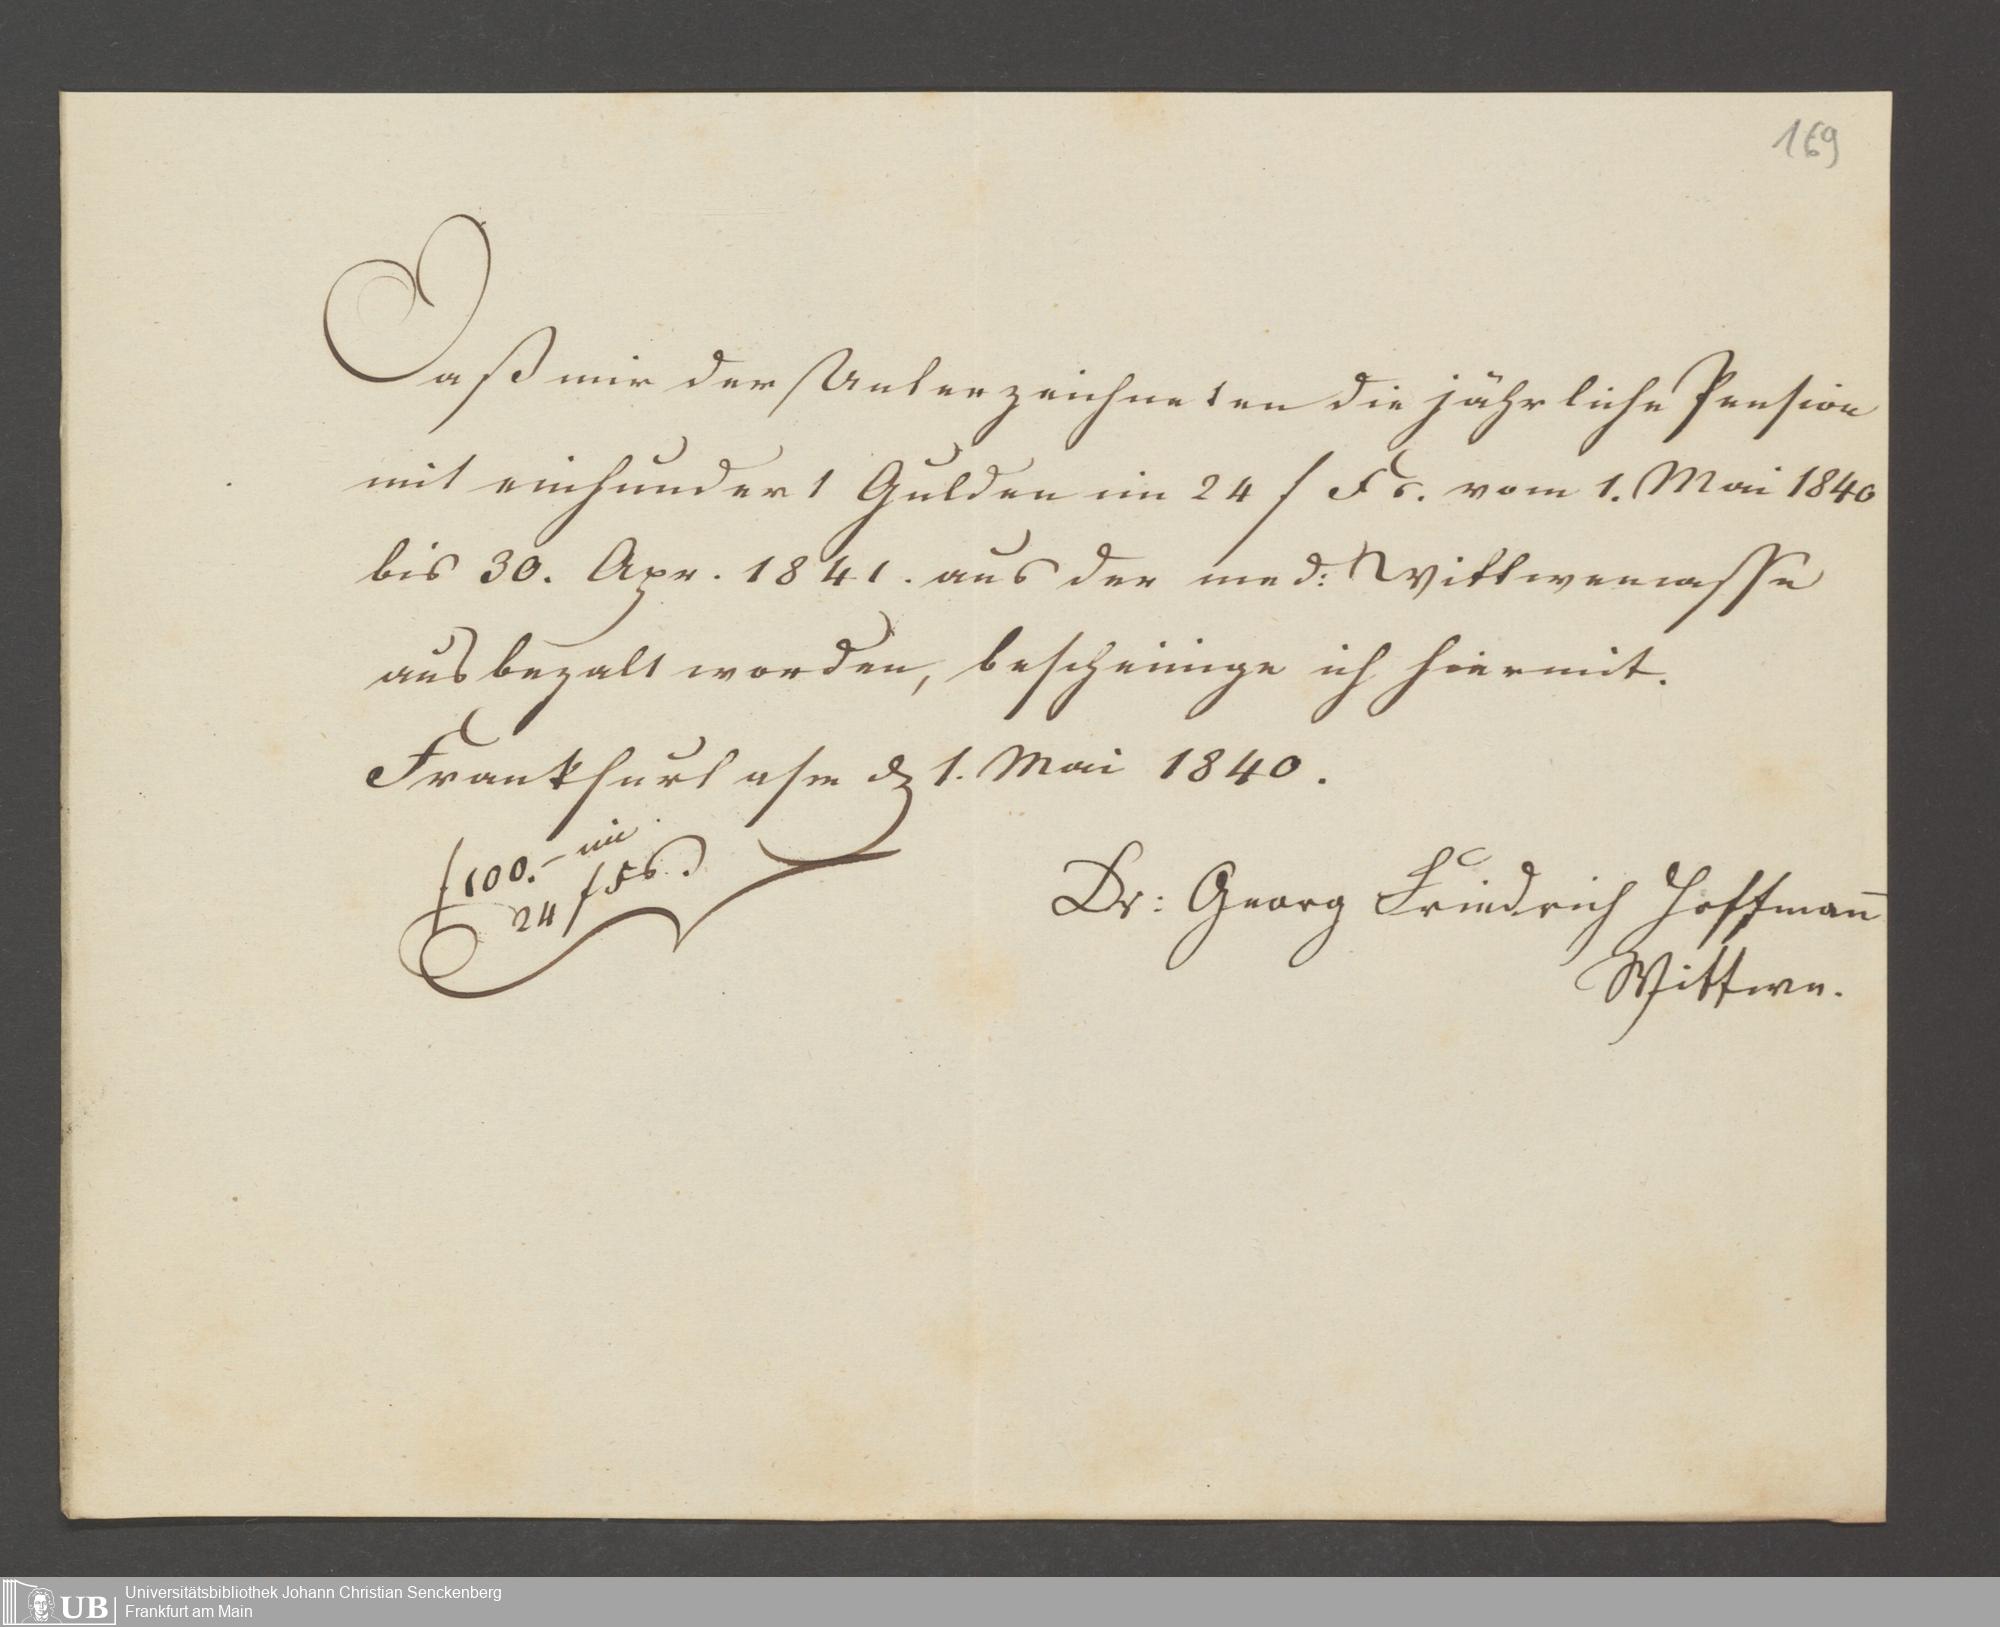 169
Daß mir der Unterzeichneten die jährliche Pension
mit einhundert Gulden im 24 f Fs. vom 1. Mai 1840
bis 30. Apr. 1841. aus der med: Wittwencasse
ausbezalt worden, bescheinige ich hiermit.
Frankfurt a/m d 1. Mai 1840.
f 100.– im
24 f Fs.
Dr: Georg Friedrich Hoffmann̅
Wittwe.
UB
Universitätsbibliothek Johann Christian Senckenberg
Frankfurt am Main